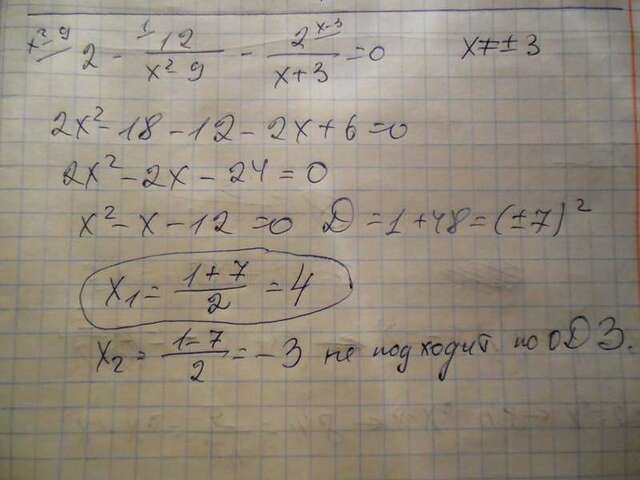 x²-9 2 - 1 12/(x²-9) - 2 x-3/(x+3) = 0 x≠±3
2x²-18-12-2x+6=0
2x²-2x-24=0
x²-x-12=0 D=1+48=(±7)²
x₁=(1+7)/2=4
x₂=(1-7)/2=-3 не подходит по ОДЗ.